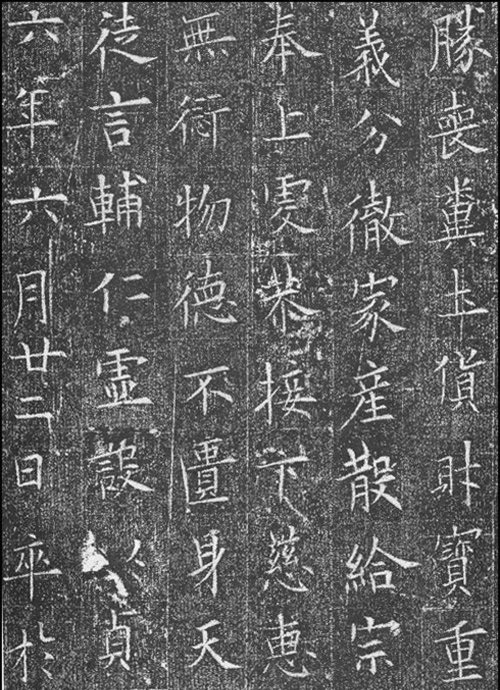 勝喪糞土貨財寶重
義分徹家産散給宗
奉上虔恭接下慈惠
無衒物德不匱身天
徒言輔仁虛設以貞
六年六月廿二日卒於